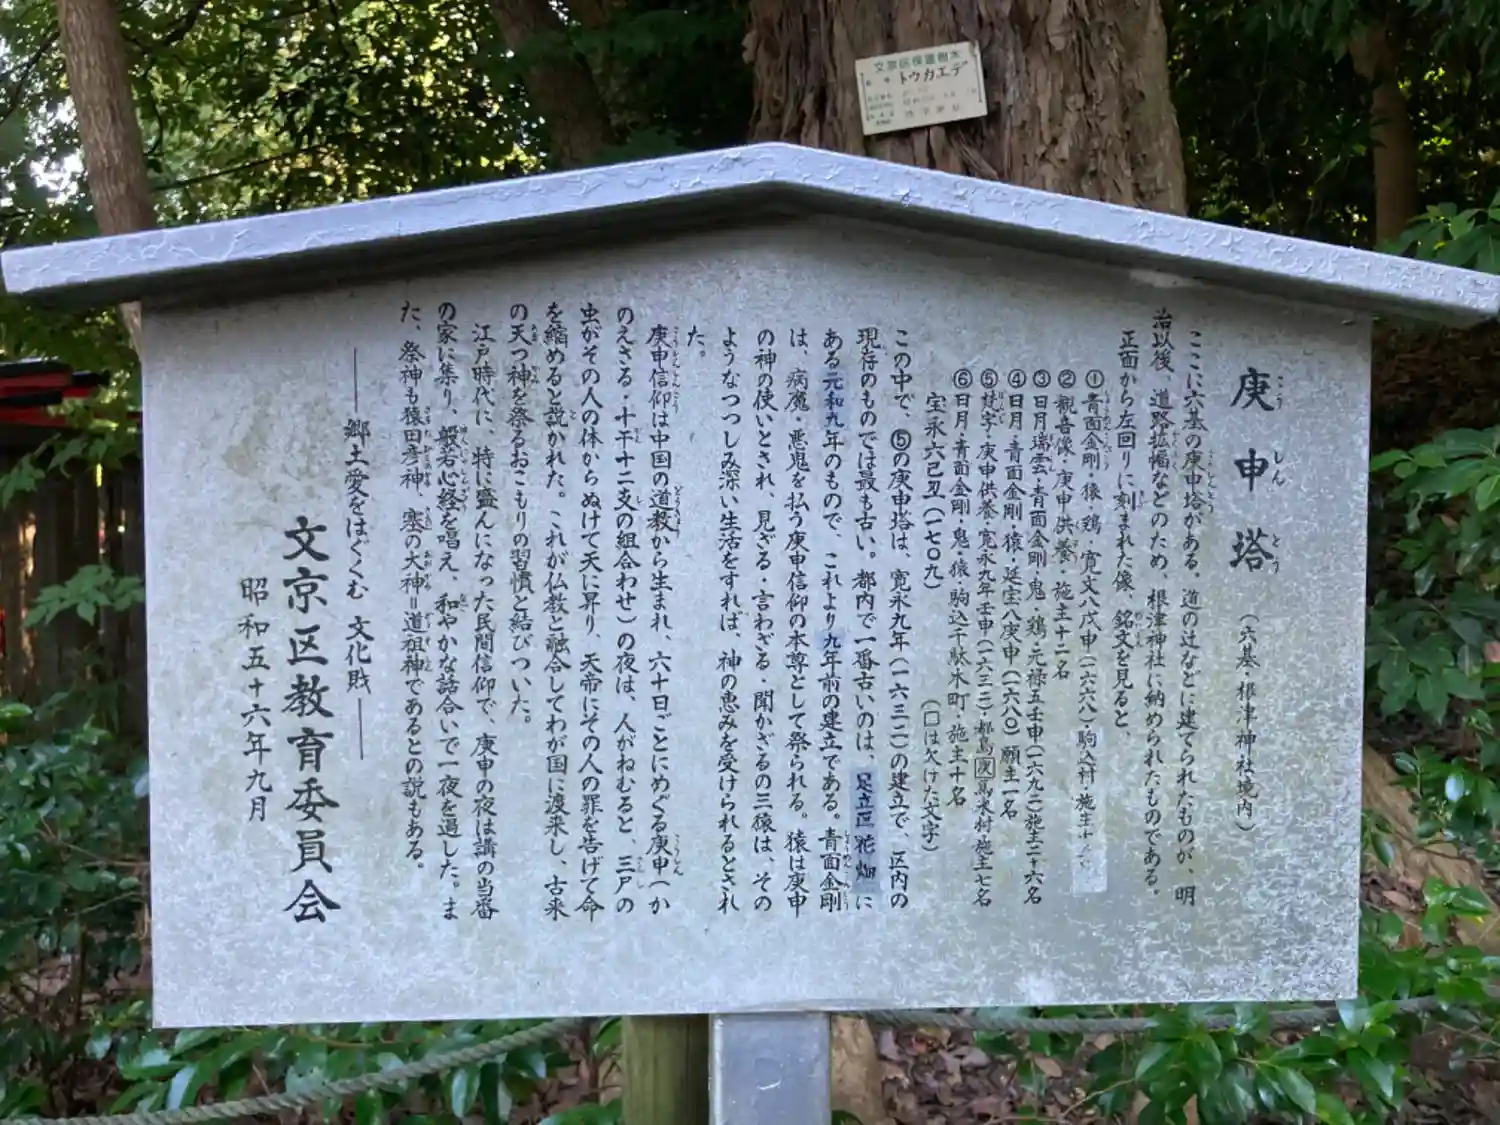 文京区保護樹木
トウカエデ
庚申塔 (六基・根津神社境内)
ここに六基の庚申塔がある。道の辻などに建てられたものが、明
治以後、道路拡幅などのため、根津神社に納められたものである。
正面から左回りに刻まれた像、銘文を見ると、
①青面金剛・猿・鶏・寛文八戊申(一六六八)・駒込村・施主十
②観音像・庚申供養・施主十二名
③日月瑞雲・青面金剛・鬼・鶏・元禄五壬申(一六九二)施主二十六名
④日月・青面金剛・猿・延宝八庚申(一六八〇)願主一名
⑤梵字・庚申供養・寛永九年壬申(一六三二)・都島馬米村施主七名
⑥日月・青面金剛・鬼・猿・駒込千駄木町・施主十名
宝永六己丑(一七〇九) (□は欠けた文字)
この中で、⑤の庚申塔は、寛永九年(一六三二)の建立で、区内の
現存のものでは最も古い。都内で一番古いのは、足立区花畑に
ある元和九年のもので、これより九年前の建立である。青面金剛
は、病魔・悪鬼を払う庚申信仰の本尊として祭られる。猿は庚申
の神の使いとされ、見ざる・言わざる・聞かざるの三猿は、その
ようなつつしみ深い生活をすれば、神の恵みを受けられるとされ
た。
庚申信仰は中国の道教から生まれ、六十日ごとにめぐる庚申(か
のえさる・十干十二支の組合わせ)の夜は、人がねむると、三尸の
虫がその人の体からぬけて天に昇り、天帝にその人の罪を告げて命
を縮めると説かれた。これが仏教と融合してわが国に渡来し、古来
の天つ神を祭るおこもりの習慣と結びついた。
江戸時代に、特に盛んになった民間信仰で、庚申の夜は講の当番
の家に集り、般若心経を唱え、和やかな話合いで一夜を過した。ま
た、祭神も猿田彦神、塞の大神=道祖神であるとの説もある。
――郷土愛をはぐくむ 文化財――
文京区教育委員会
昭和五十六年九月